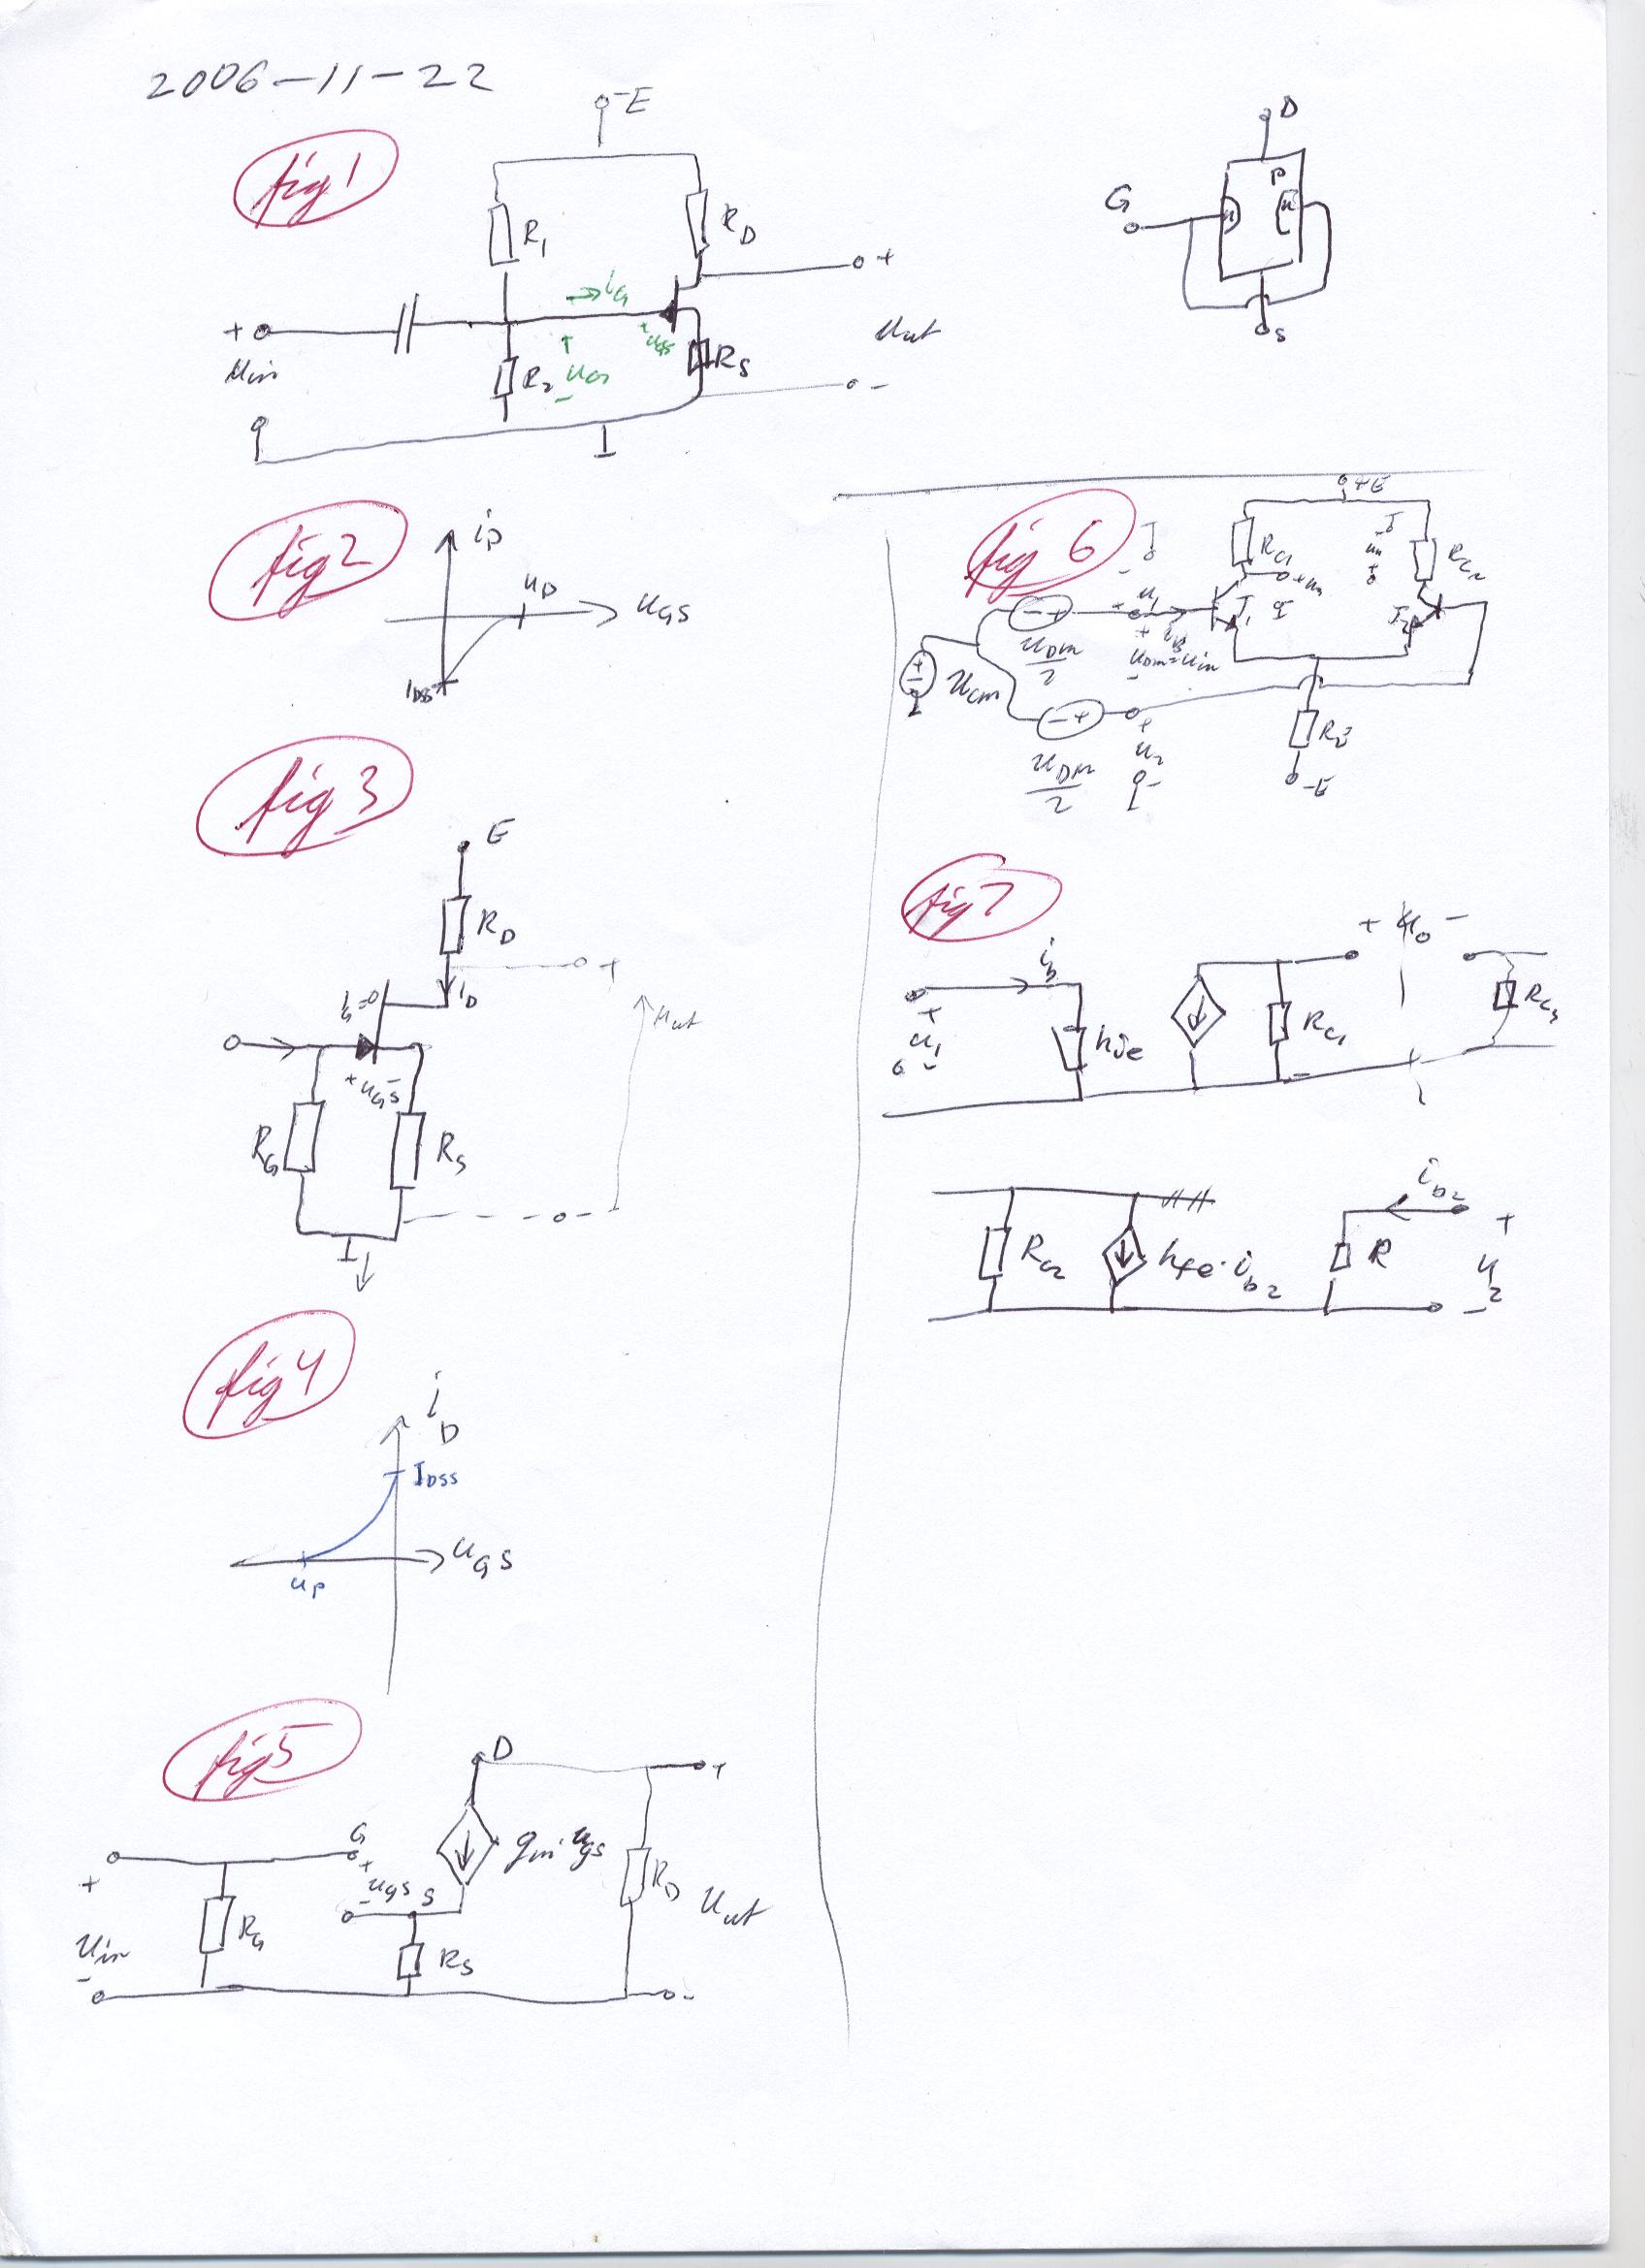 2006-11-22
fig 1
-E
R1
RD
+
iG
+ uGS
+
uin
R2
+
uG
-
RS
uut
-
D
G
P
n
n
S
fig 2
iD
uD
uGS
IDSS
fig 3
E
RD
+
iD
uut
+ uGS -
RG
RS
-
fig 4
iD
IDSS
uGS
up
fig 5
D
+
G
+
gm·ugs
+
uGS
-
S
RD
uut
RG
uin
RS
-
-
fig 6
+E
RC1
RC2
-
u1
+
- +
uDM
2
uDM=uin
-
ucm
- +
uDM
2
+
u2
-
-E
fig 7
+ uo -
ib
+
u1
-
hie
RC1
ib2
+
RC2
hfe·ib2
R
u2
-